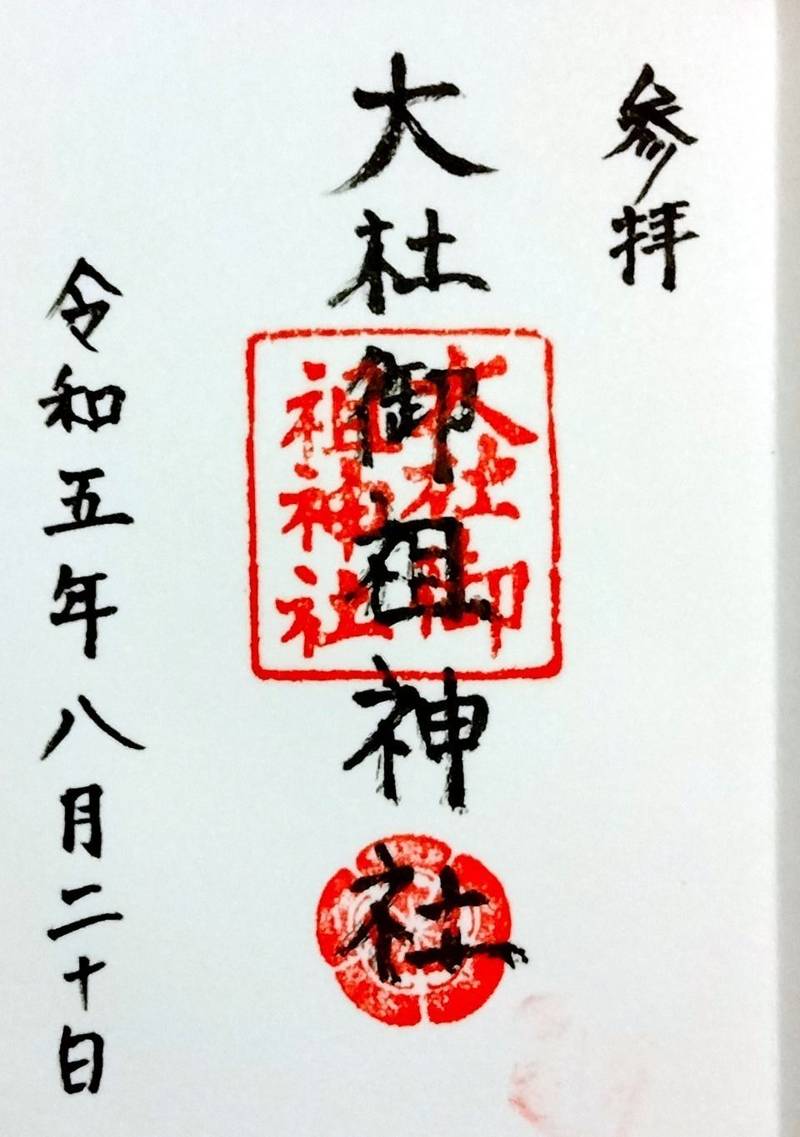 参拝
大社御祖神社
大社御
祖神社
令和五年八月二十日